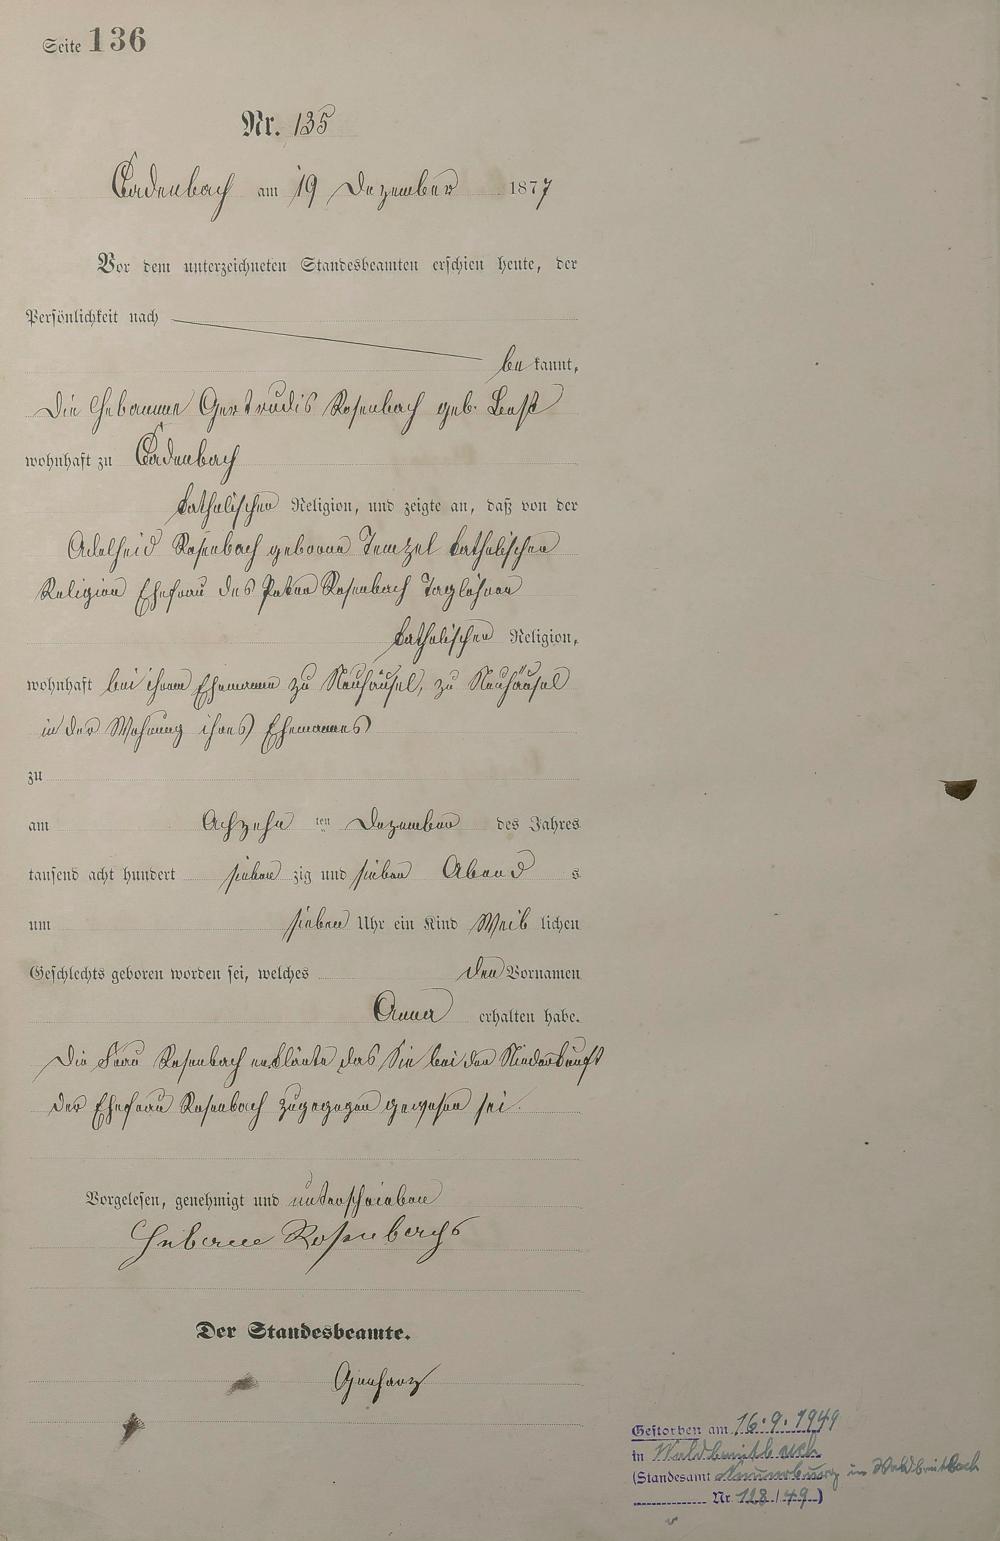 Seite 136
Nr. 135
Cadenbach am 19 Dezember 1877
Vor dem unterzeichneten Standesbeamten erschien heute, der
Persönlichkeit nach
bekannt,
Die Hebamme Gertrudis Rosenbach geb.
wohnhaft zu Cadenbach
katholischer Religion, und zeigte an, daß von der
Adelheid Rosenbach geborne katholischer
Religion Ehefrau des Peter Rosenbach Taglöhner
katholischer Religion,
wohnhaft bei ihrem Ehemanne zu Neuhäusel, zu Neuhäusel
in der Wohnung ihres Ehemannes
zu
am Achzehn ten Dezember des Jahres
tausend acht hundert sieben zig und sieben Abend s
um sieben Uhr ein Kind Weib lichen
Geschlechts geboren worden sei, welches den Vornamen
Anna erhalten habe.
Die Frau Rosenbach erklärte das Sie bei der Niederkunft
der Ehefrau Rosenbach zugegegen gewesen sei.
Vorgelesen, genehmigt und unterschrieben
Rosenbach
Der Standesbeamte.
Gestorben am 16.9.1949
in Waldbreitbach
(Standesamt in Waldbreitbach
Nr. 128/49)